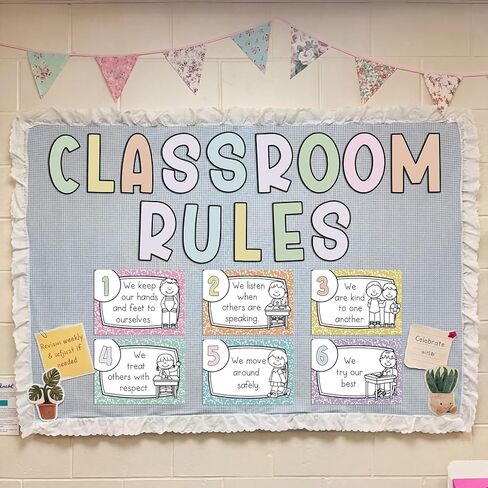 CLASSROOM
RULES
1
We keep
our hands
and feet to
ourselves.
2
We listen
when
others are
speaking.
3
We
are kind
to one
another.
4
We
treat
others with
respect.
5
We move
around
safely.
6
We
try our
best.
Review weekly
& adjust if
needed
Celebrate